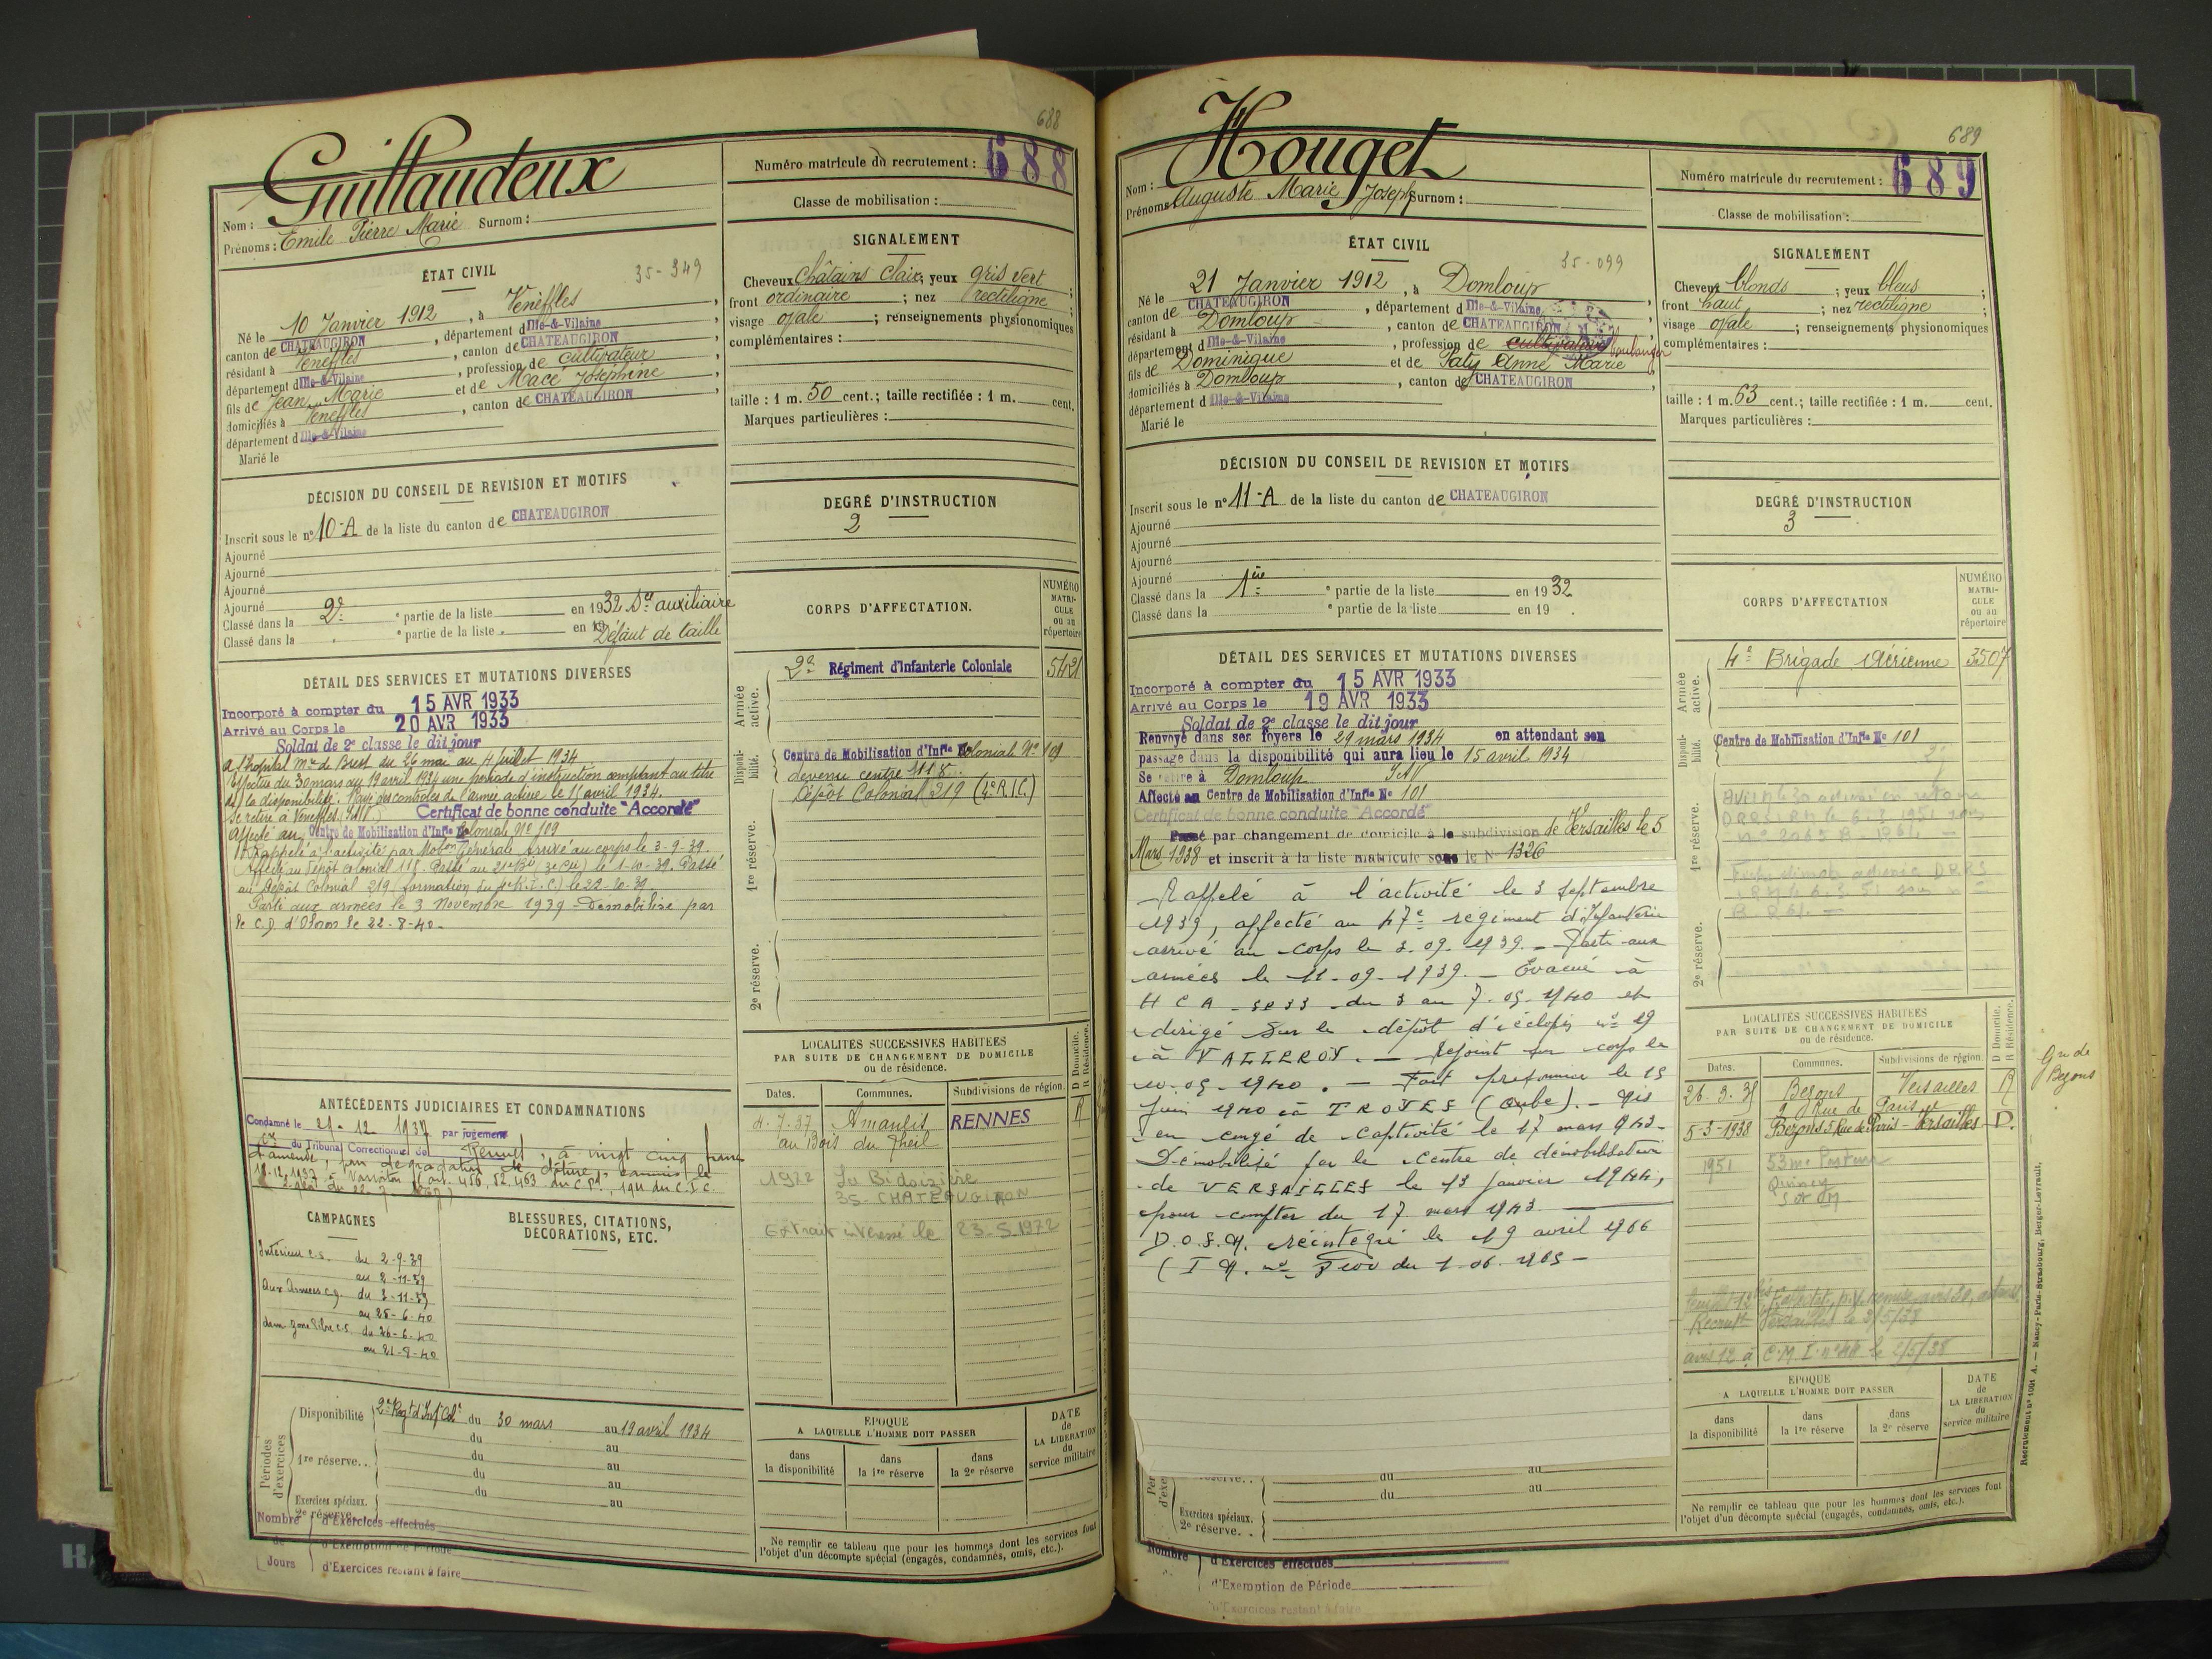 688
Guillaudeux
Numéro matricule du recrutement : 688
Nom :
Prénoms : Emile Pierre Marie Surnom :
Classe de mobilisation :
ÉTAT CIVIL
35-349
Né le 10 Janvier 1912, à Venèffles
canton de CHATEAUGIRON, département d Ille-&-Vilaine
résidant à Venèffles, canton de CHATEAUGIRON
département d Ille-&-Vilaine, profession de cultivateur
fils de Jean Marie et de Macé Joséphine
domiciliés à Venèffles, canton de CHATEAUGIRON
département d Ille-&-Vilaine
Marié le
SIGNALEMENT
Cheveux Châtains clairs yeux gris vert ;
front ordinaire ; nez rectiligne ;
visage ovale ; renseignements physionomiques
complémentaires :
taille : 1 m. 50 cent.; taille rectifiée : 1 m. cent.
Marques particulières :
DÉCISION DU CONSEIL DE REVISION ET MOTIFS
Inscrit sous le n° 10-A de la liste du canton de CHATEAUGIRON
Ajourné
Ajourné
Ajourné
Ajourné
Classé dans la 2e ° partie de la liste en 1932 Son auxiliaire
Classé dans la ° partie de la liste en 19 Défaut de taille
DEGRÉ D'INSTRUCTION
2
DÉTAIL DES SERVICES ET MUTATIONS DIVERSES
Incorporé à compter du 15 AVR 1933
Arrivé au Corps le 20 AVR 1933
Soldat de 2e classe le dit jour
A l'hôpital Mre de Brest du 26 mai au 4 juillet 1934
Effectue du 30 mars au 19 avril 1934 une période d'instruction comptant au titre
de la disponibilité. Rayé des contrôles de l'armée active le 15 avril 1934.
Se retire à Venèffles (I&V) Certificat de bonne conduite "Accordé"
Affecté au Centre de Mobilisation d'Infie Coloniale N° 109
Rappelé à l'activité par Mobon Générale Arrivé au corps le 3-9-39.
Affecté au Dépôt colonial 118. Passé au 21e Bie 3e Cie) le 1-10-39. Passé
au Dépôt Colonial 219 (formation du 4e R.I.C.) le 22-10-39.
Parti aux armées le 3 Novembre 1939 - Démobilisé par
le C.D. d'Oloron le 22-8-40-
CORPS D'AFFECTATION.
NUMÉRO
MATRI-
CULE
ou au
répertoire
Armée active.
2e Régiment d'Infanterie Coloniale 5421
Disponibilité.
Centre de Mobilisation d'Infie Coloniale N° 109
devenu centre 118
Dépôt Colonial 219 (4e R.I.C.)
1re réserve.
2e réserve.
ANTÉCÉDENTS JUDICIAIRES ET CONDAMNATIONS
Condamné le 21-12-1937 par jugement
du Tribunal Correctionnel de Rennes, à vingt cinq francs
d'amende, pour dégradation de clôture, commis le
CAMPAGNES
Intérieur c.s. du 2-9-39
au 2-11-39
Aux Armées c.g. du 3-11-39
au 25-6-40
dans zone libre c.s. du 26-6-40
au 21-8-40
BLESSURES, CITATIONS,
DECORATIONS, ETC.
LOCALITÉS SUCCESSIVES HABITÉES
PAR SUITE DE CHANGEMENT DE DOMICILE
ou de résidence.
D Domicile.
R Résidence.
Dates. Communes. Subdivisions de région.
4.7.37 Amanlis RENNES R
au Bois du Theil
1922 La Bidoizière
35-CHATEAUGIRON
Extrait in versé le 23.5.1972
Périodes d'exercices
Disponibilité 2e Régt d'Inf. Cole du 30 mars au 19 avril 1934
du au
1re réserve.. du au
du au
Exercices spéciaux. du au
2e réserve..
Nombre d'Exercices effectués
de d'Exemption de Période
Jours d'Exercices restant à faire
ÉPOQUE
A LAQUELLE L'HOMME DOIT PASSER
dans la disponibilité
dans la 1re réserve
dans la 2e réserve
DATE
de
LA LIBÉRATION
du
service militaire
Ne remplir ce tableau que pour les hommes dont les services font
l'objet d'un décompte spécial (engagés, condamnés, omis, etc.).
689
Houget
Numéro matricule du recrutement : 689
Nom :
Prénoms : Auguste Marie Joseph Surnom :
Classe de mobilisation :
ÉTAT CIVIL
35-099
Né le 21 Janvier 1912, à Domloup
canton de CHATEAUGIRON, département d Ille-&-Vilaine
résidant à Domloup, canton de CHATEAUGIRON
département d Ille-&-Vilaine, profession de cultivateur boulanger
fils de Dominique et de Paty Anne Marie
domiciliés à Domloup, canton de CHATEAUGIRON
département d Ille-&-Vilaine
Marié le
SIGNALEMENT
Cheveux blonds ; yeux bleus ;
front haut ; nez rectiligne
visage ovale ; renseignements physionomiques
complémentaires :
taille : 1 m. 63 cent.; taille rectifiée : 1 m. cent.
Marques particulières :
DÉCISION DU CONSEIL DE REVISION ET MOTIFS
Inscrit sous le n° 11-A de la liste du canton de CHATEAUGIRON
Ajourné
Ajourné
Ajourné
Ajourné
Classé dans la 1ère ° partie de la liste en 1932
Classé dans la ° partie de la liste en 19 .
DEGRÉ D'INSTRUCTION
3
DÉTAIL DES SERVICES ET MUTATIONS DIVERSES
Incorporé à compter du 15 AVR 1933
Arrivé au Corps le 19 AVR 1933
Soldat de 2e classe le dit jour
Renvoyé dans ses foyers le 29 mars 1934 en attendant son
passage dans la disponibilité qui aura lieu le 15 avril 1934
Se retire à Domloup I&V
Affecté au Centre de Mobilisation d'Infie N° 101
Certificat de bonne conduite "Accordé"
Passé par changement de domicile à la subdivision de Versailles le 5
Mars 1938 et inscrit à la liste matricule sous le N° 1326
Rappelé à l'activité le 3 septembre
1939, affecté au 47e régiment d'Infanterie
arrivé au corps le 3.09.1939. - Parti aux
armées le 11-09-1939. - Evacué à
H C A du 3 au 7-05-1940 et
dirigé sur le dépôt d'éclopés n° 19
à VALLEROY. - Rejoint son corps le
10-05-1940. - Fait prisonnier le 15
juin 1940 à TROYES (Aube). - Mis
en congé de captivité le 17 mars 1943-
Démobilisé par le centre de démobilisation
de VERSAILLES le 13 janvier 1944,
pour compter du 17 mars 1943
D.O.S.M. réintégré le 19 avril 1966
(I M. n° du 1-06-1965-
CORPS D'AFFECTATION
NUMÉRO
MATRI-
CULE
ou au
répertoire
Armée active.
4e Brigade Aérienne 3507
Disponibilité.
Centre de Mobilisation d'Infie N° 101
1re réserve.
2e réserve.
LOCALITÉS SUCCESSIVES HABITÉES
PAR SUITE DE CHANGEMENT DE DOMICILE
ou de résidence.
D Domicile.
R Résidence.
Dates. Communes. Subdivisions de région.
26.3.35 Bezons Versailles R
9 Rue de Paris
5-3-1938 Bezons 5 Rue de Paris - Versailles - D.
1951 53 Pasteur
Quincy
S et M
Gie de
Bezons
avis 12 à C.M.I. n°44 le 2/5/38
Exercices spéciaux.
2e réserve..
du au
du au
Nombre d'Exercices effectués
d'Exemption de Période
d'Exercices restant à faire
ÉPOQUE
A LAQUELLE L'HOMME DOIT PASSER
dans la disponibilité
dans la 1re réserve
dans la 2e réserve
DATE
de
LA LIBÉRATION
du
service militaire
Ne remplir ce tableau que pour les hommes dont les services font
l'objet d'un décompte spécial (engagés, condamnés, omis, etc.).
Recrutement n° 1091 A. — Nancy-Paris-Strasbourg, Berger-Levrault.